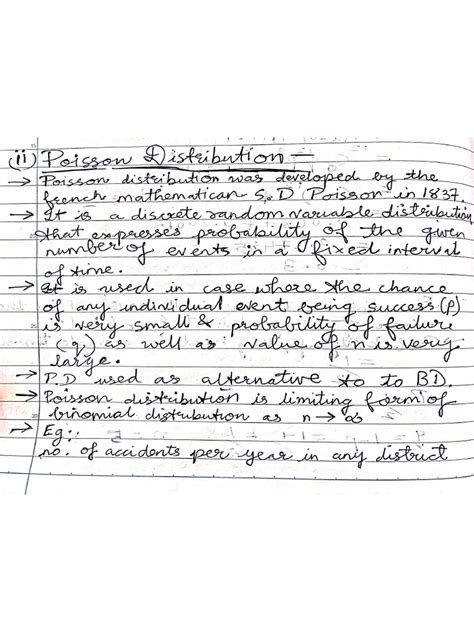 (ii) Poisson Distribution —
→ Poisson distribution was developed by the
french mathematican S.D Poisson in 1837.
→ It is a discrete random variable distribution
that expresses probability of the given
number of events in a fixed interval
of time.
→ It is used in case where the chance
of any individual event being success (p)
is very small & probability of failure
(q) as well as value of n is very
large.
→ P.D used as alternative to to BD.
→ Poisson distribution is limiting form of
binomial distribution as n → ∞
→ Eg:,
no. of accidents per year in any district